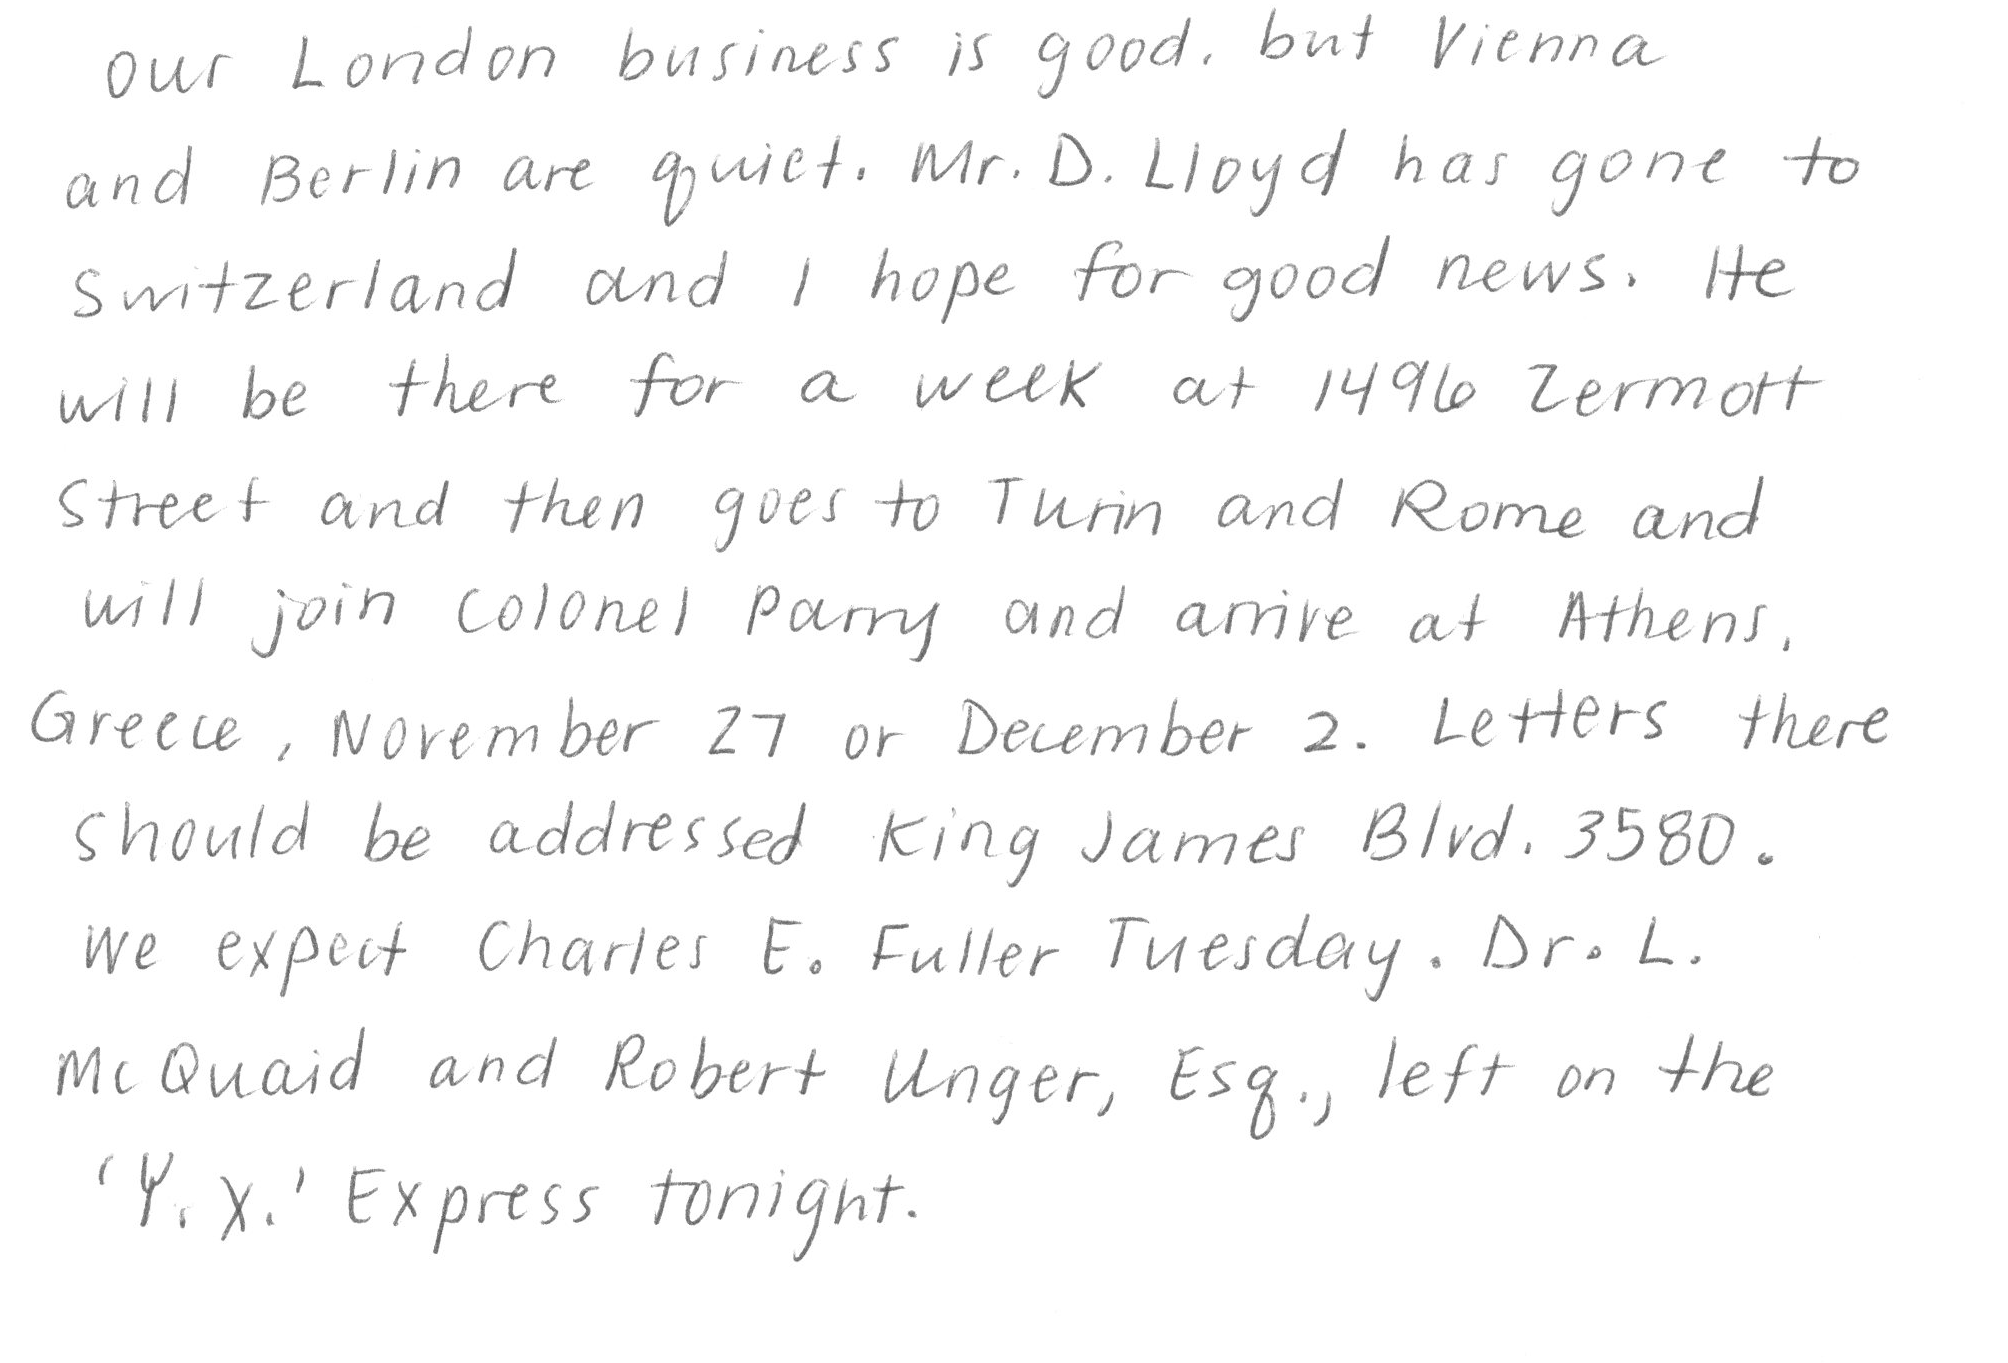 our London business is good. but Vienna
and Berlin are quiet. Mr. D. Lloyd has gone to
Switzerland and I hope for good news. He
will be there for a week at 1496 Zermott
Street and then goes to Turin and Rome and
will join Colonel Parry and arrive at Athens,
Greece, November 27 or December 2. Letters there
should be addressed King James Blvd. 3580.
We expect Charles E. Fuller Tuesday. Dr. L.
McQuaid and Robert Unger, Esq., left on the
'Y. X.' Express tonight.